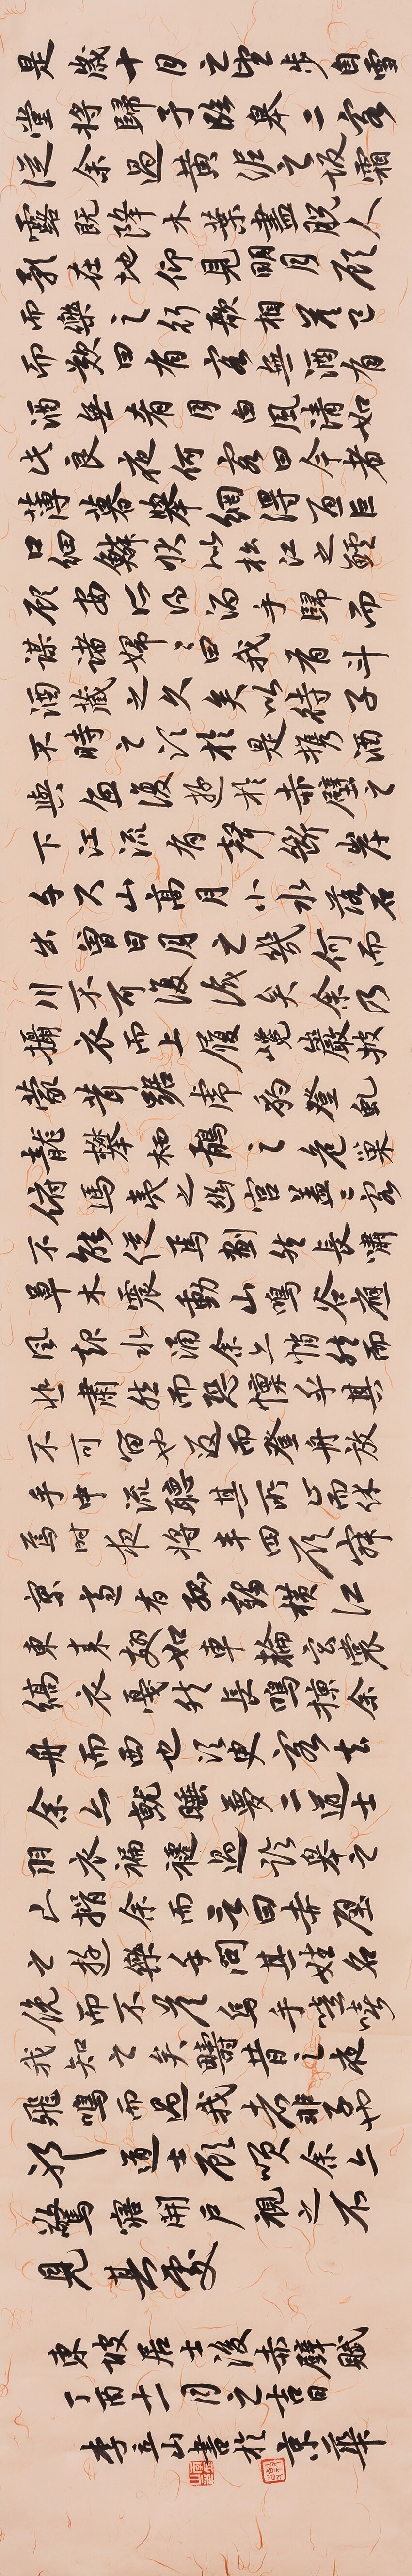 是歲十月之望步自雪
堂將歸于臨皋二客
從余過黃泥之坂霜
露既降木葉盡脫人
影在地仰見明月顧
而樂之行歌相答已
而歎曰有客無酒有
酒無肴月白風清如
此良夜何客曰今者
薄暮舉網得魚巨
口細鱗狀似松江之鱸
顧安所得酒乎歸而
謀諸婦婦曰我有斗
酒藏之久矣以待子
不時之須於是攜酒
與魚復遊於赤壁之
下江流有聲斷岸
千尺山高月小水落石
出曾日月之幾何而
川不可復識矣余乃
攝衣而上履巉巖披
蒙茸踞虎豹登虬
龍攀栖鶻之危巢
俯馮夷之幽宮蓋二客
不能從焉劃然長嘯
草木震動山鳴谷應
風起水涌余亦悄然而
悲肅然而恐凜乎其
不可留也返而登舟放
乎中流聽其所止而休
焉時夜將半四顧寂
寥適有孤鶴橫江
東來翅如車輪玄裳
縞衣戛然長鳴掠余
舟而西也須臾客去
余亦就睡夢二道士
羽衣蹁躚過臨皋之
下揖余而言曰赤壁
之遊樂乎問其姓名
俛而不答嗚乎噫嘻
我知之矣疇昔之夜
飛鳴而過我者非子也
邪道士顧笑余亦
驚寤開戶視之不
見其處
東坡居士後赤壁賦
丁酉十一月之吉日
李玉山書於京華